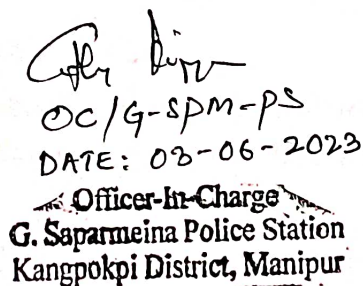 OC/G-SPM-PS
DATE: 03-06-2023
Officer-In-Charge
G. Saparmeina Police Station
Kangpokpi District, Manipur